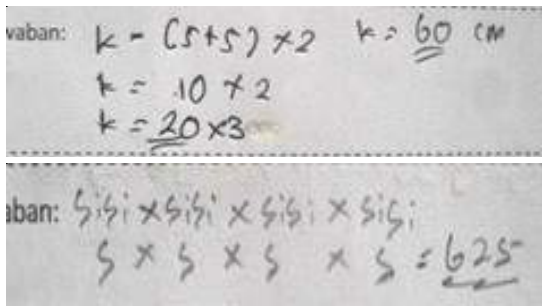 waban: k = (5+5) × 2 k = 60 cm
k = 10 × 2
k = 20 × 3
aban: Sisi × Sisi × Sisi × Sisi
5 × 5 × 5 × 5 = 625